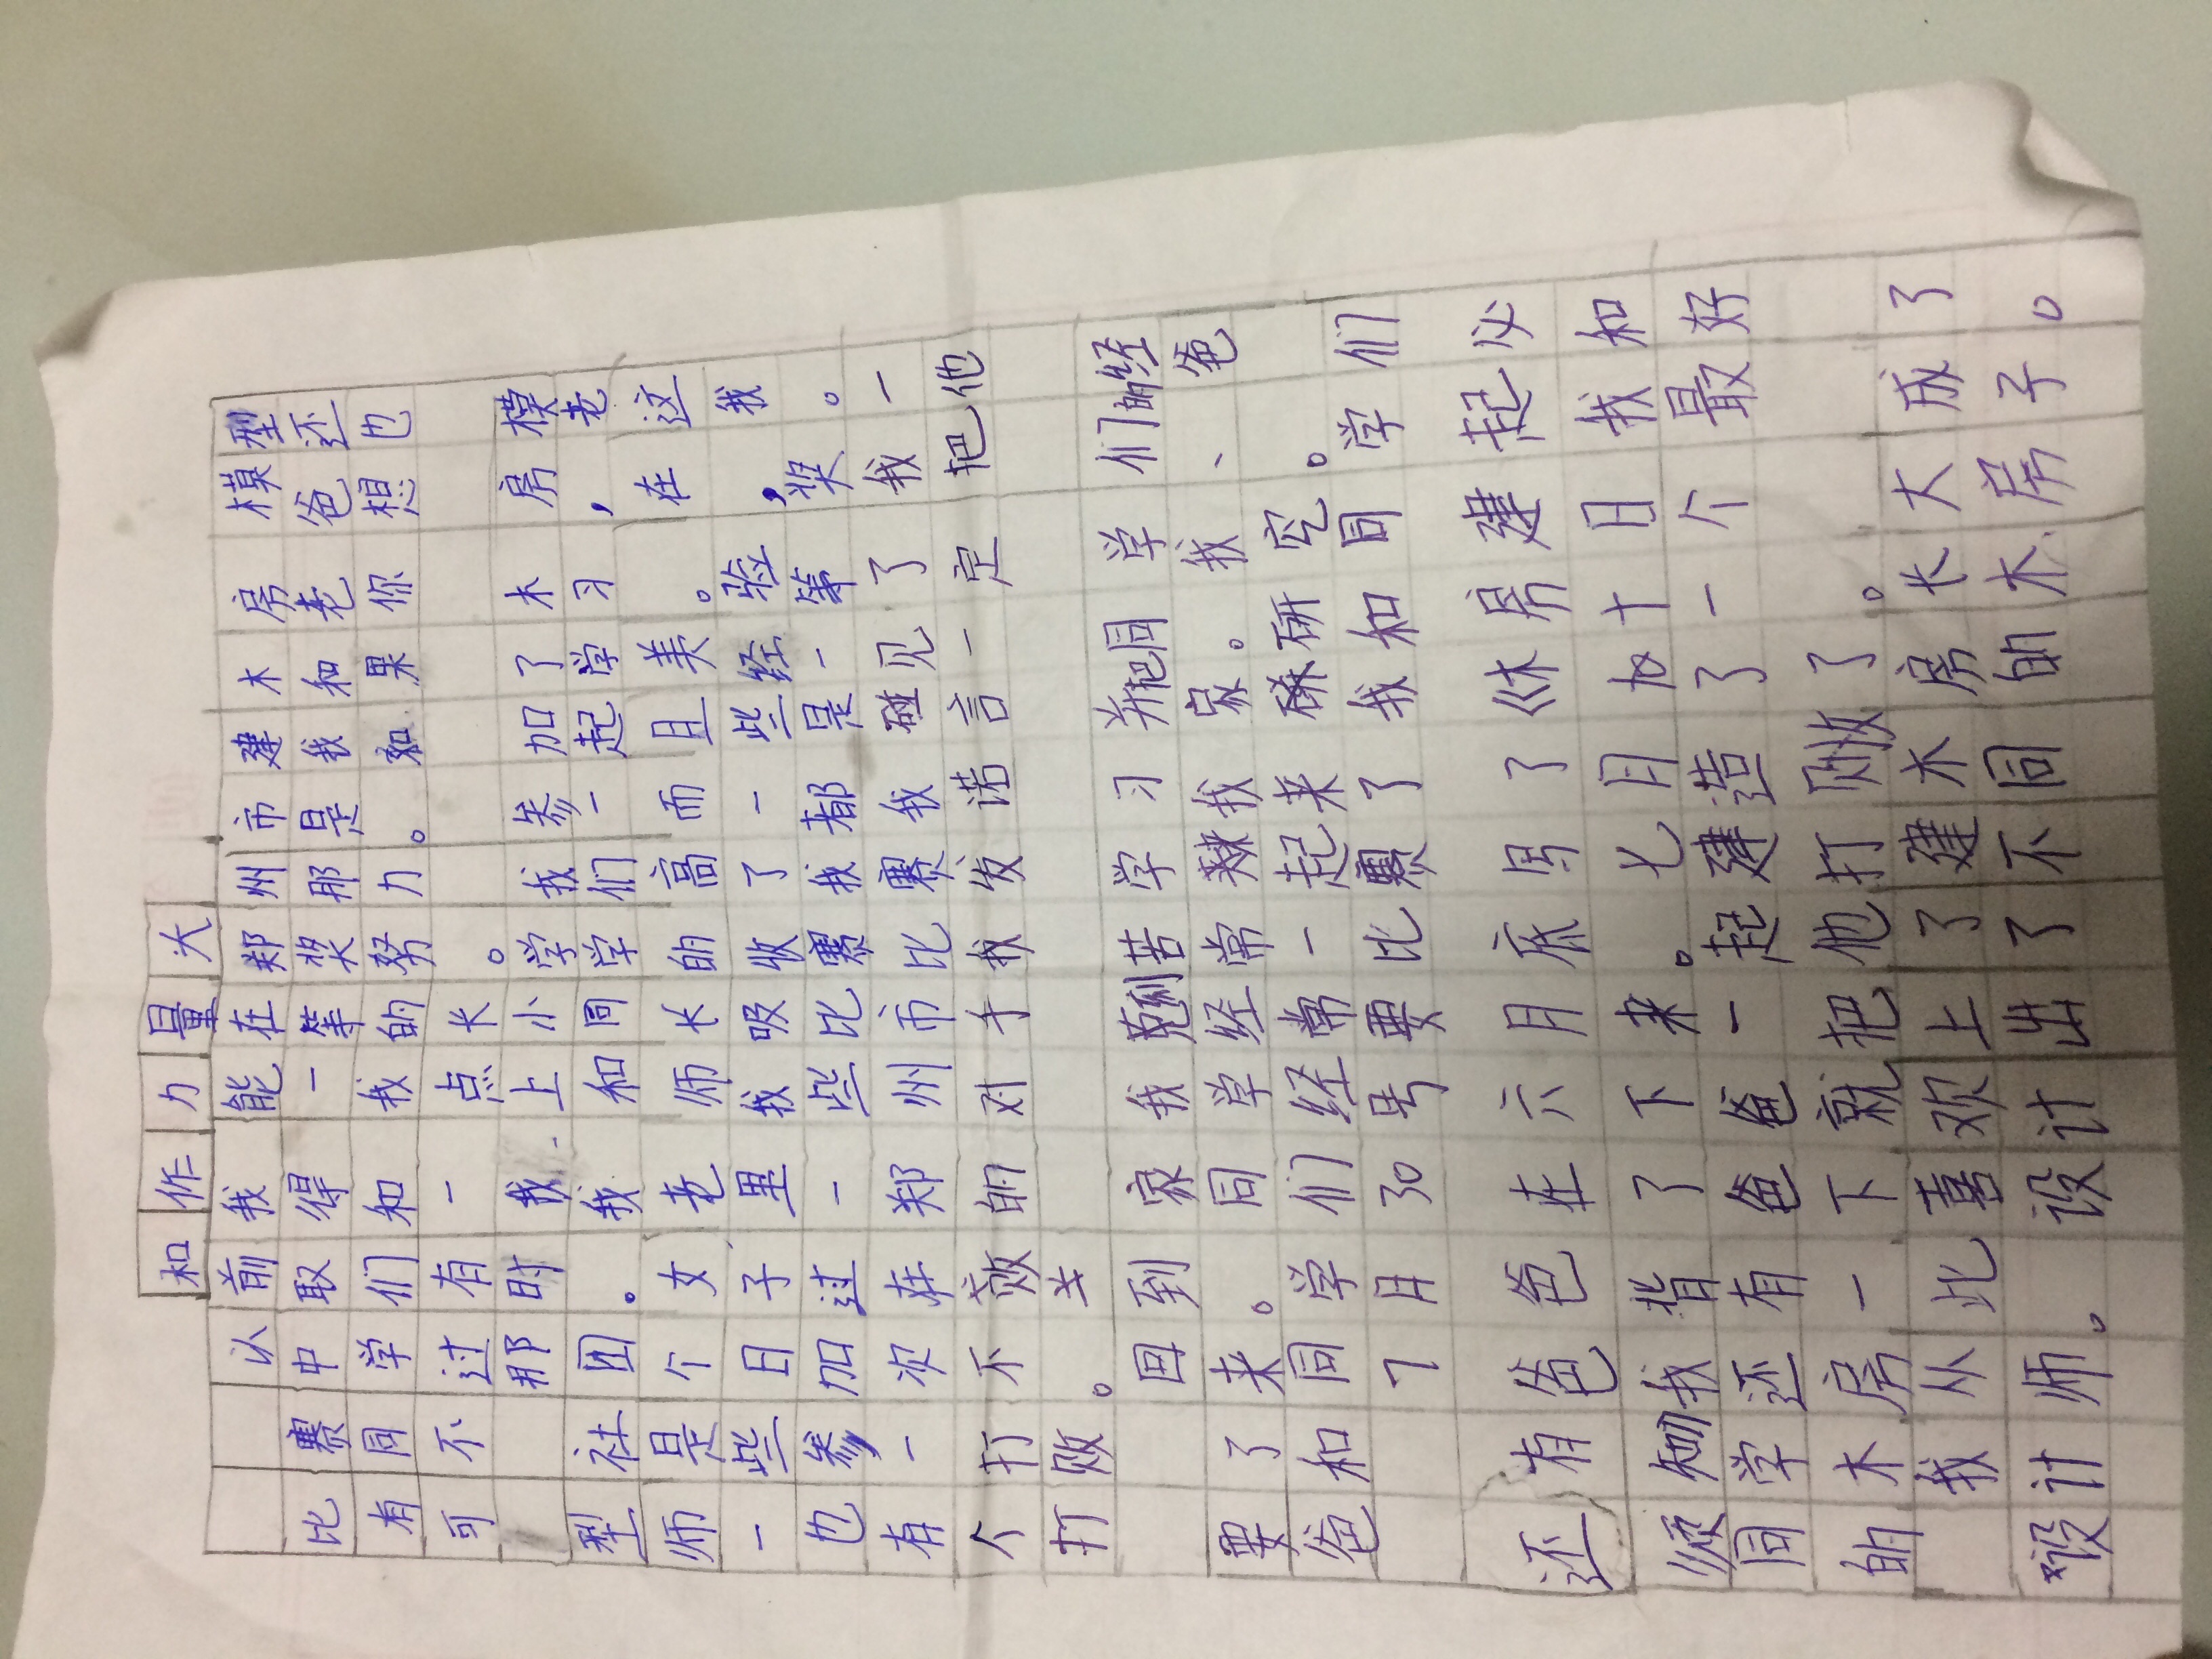 和作力量大
以前我能在郑州市建木房模型
比赛中取得一等奖那是我和老爸还
有同学们和我的努力。如果你想也
可不过有一点长。
那时我上小学我参加了木房模
型社团。我和同学们一起学习，老
师是个女老师长的高而且美。在这
一些日子里我吸收了一些经验，我
也参加过一些比赛我都是一等奖。
有一次在郑州市比赛我碰见了我一
个打不败的对于我发诺言一定把他
打败。
回到家我刻苦学习并把同学们的经
要了来。同学经常来我家。我、爸
爸和同学们经常一起来研究。
7月30号要比赛了我和同学们
还有爸爸在六月底写了《木房建起必
须知我背了下来。七月九十日我和
同学还有爸爸一起建造了一个最好
的木房一下就把他打败了。
我从此喜欢上了建木房长大成了
设计师。设计出了不同的木房子。